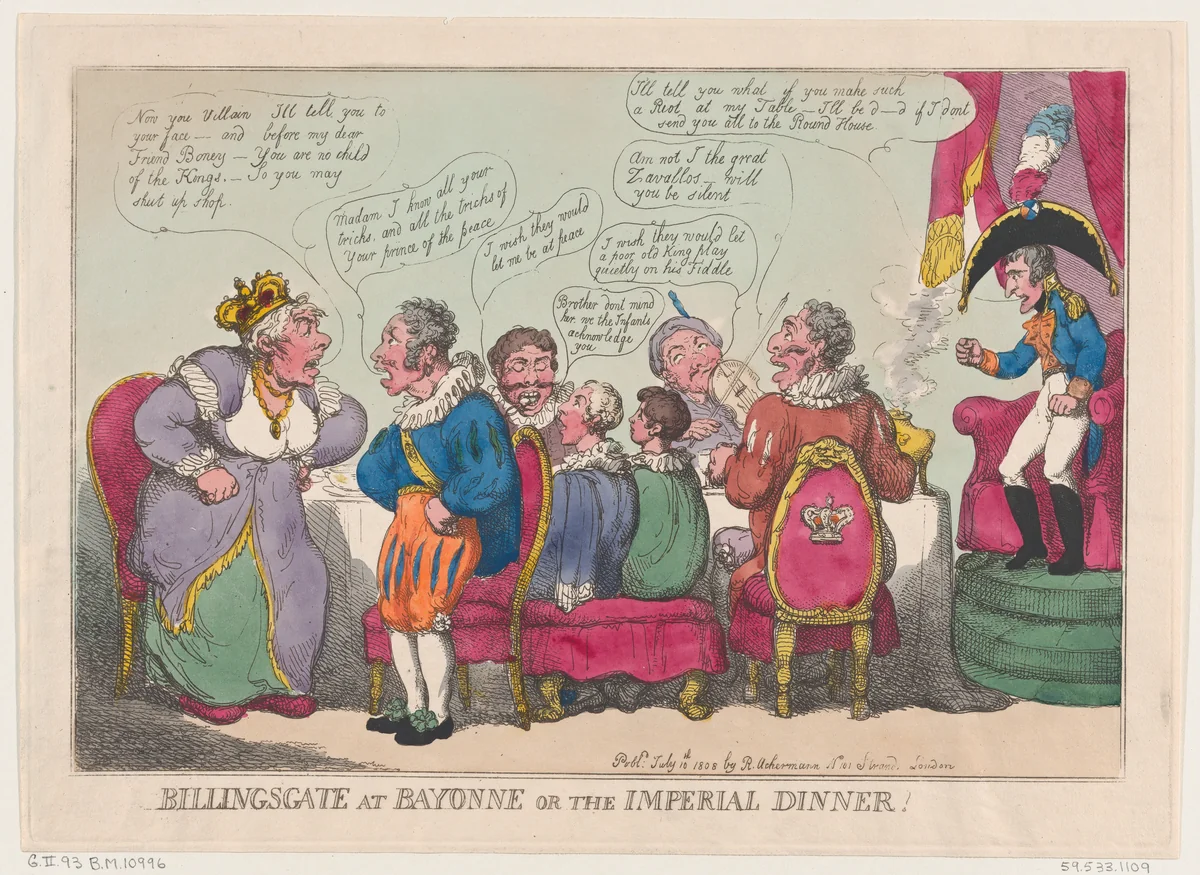 Now you Villain I'll tell you to
your face — and before my dear
Friend Boney — You are no child
of the Kings. — So you may
shut up shop.
Madam I know all your
tricks, and all the tricks of
Your prince of the peace
I wish they would
let me be at peace
Brother dont mind
her we the Infants
acknowledge
you
I wish they would let
a poor old King play
quietly on his Fiddle
Am not I the grrat
Zavallos — will
you be silent
I'll tell you what if you make such
a Riot at my Table — I'll be d—d if I dont
send you all to the Round House.
Publ. July 10th 1808 by R. Ackermann No 101 Strand. London
BILLINGSGATE AT BAYONNE OR THE IMPERIAL DINNER!
G.II.93 B.M.10996
59.533.1109